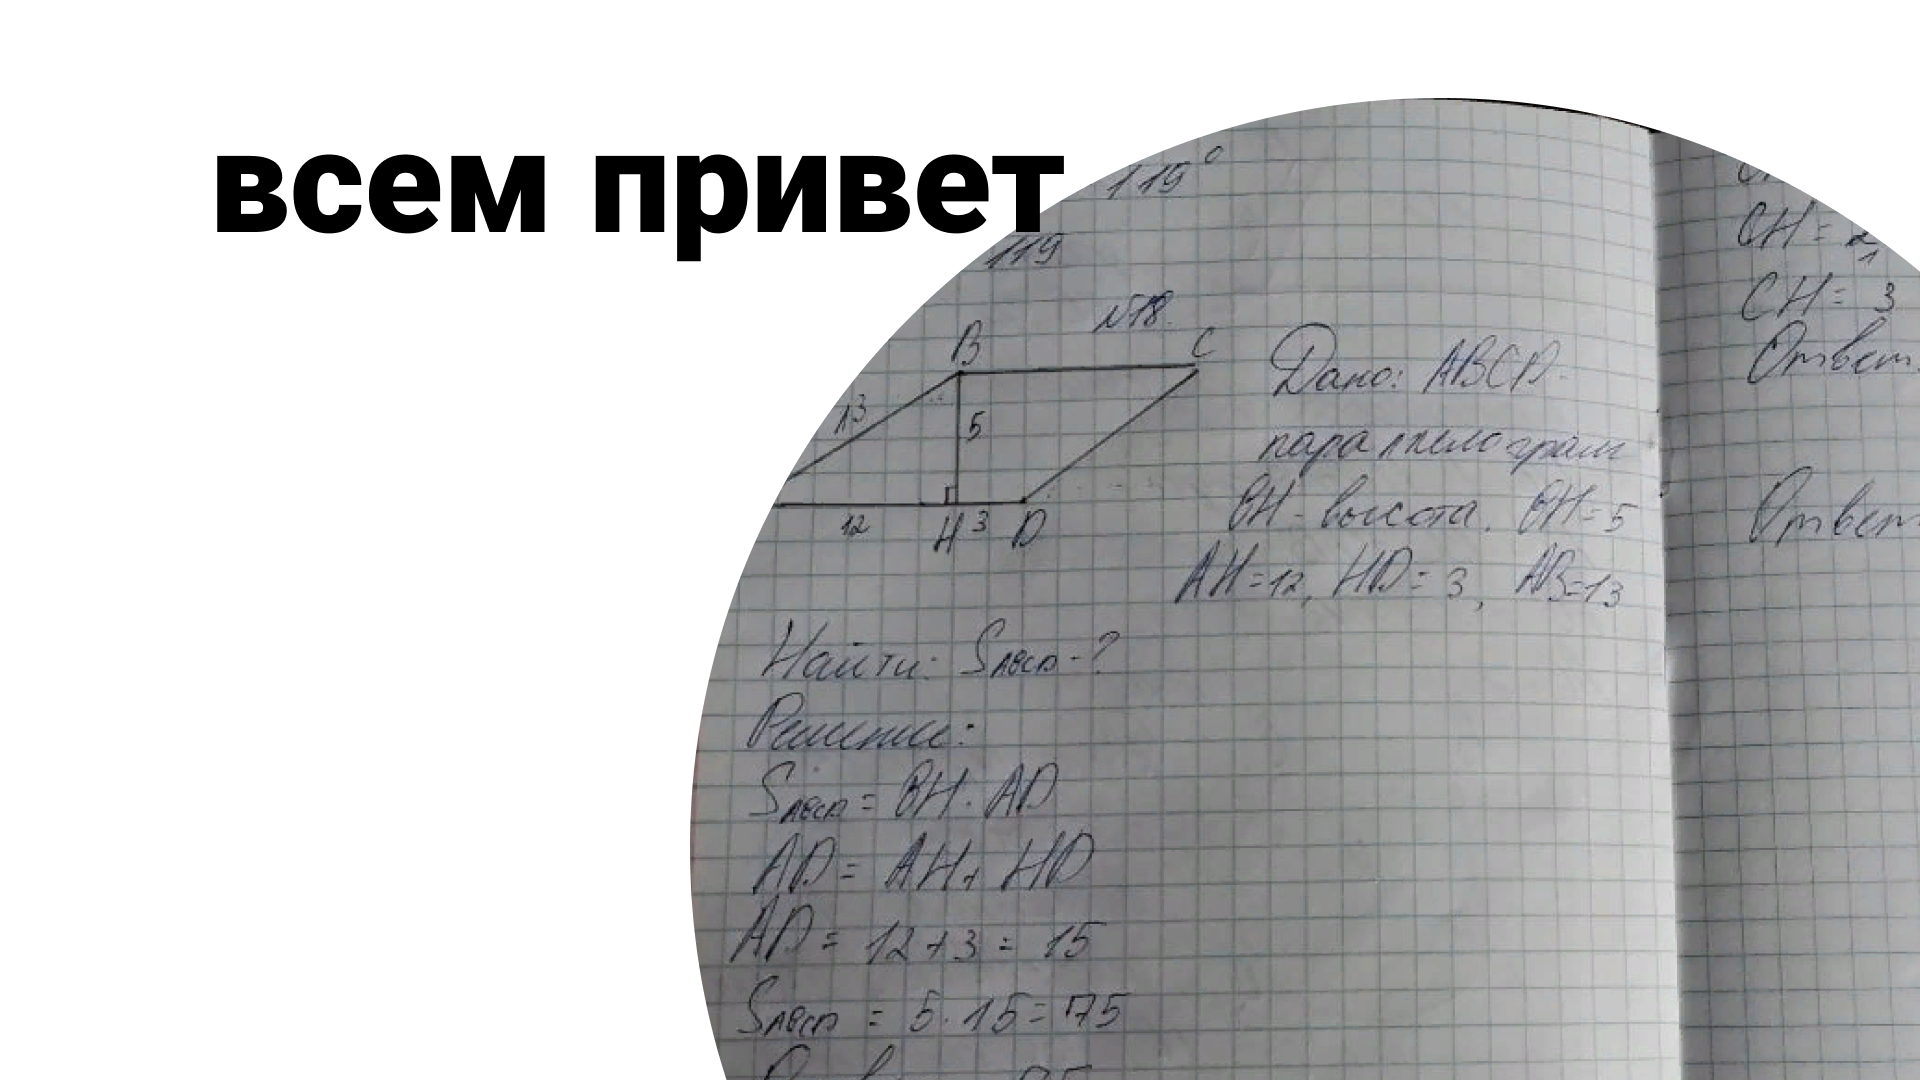 всем привет
119°
119
№18.
B C
13 5
12 H 3 D
Дано: ABCD.
параллелограм
BH - высота. BH=5
AH=12, HD=3, AB=13
Найти: SABCD - ?
Решение:
SABCD = BH · AD
AD = AH + HD
AD = 12 + 3 = 15
SABCD = 5 · 15 = 75
CH =
CH = 3
Ответ
Ответ